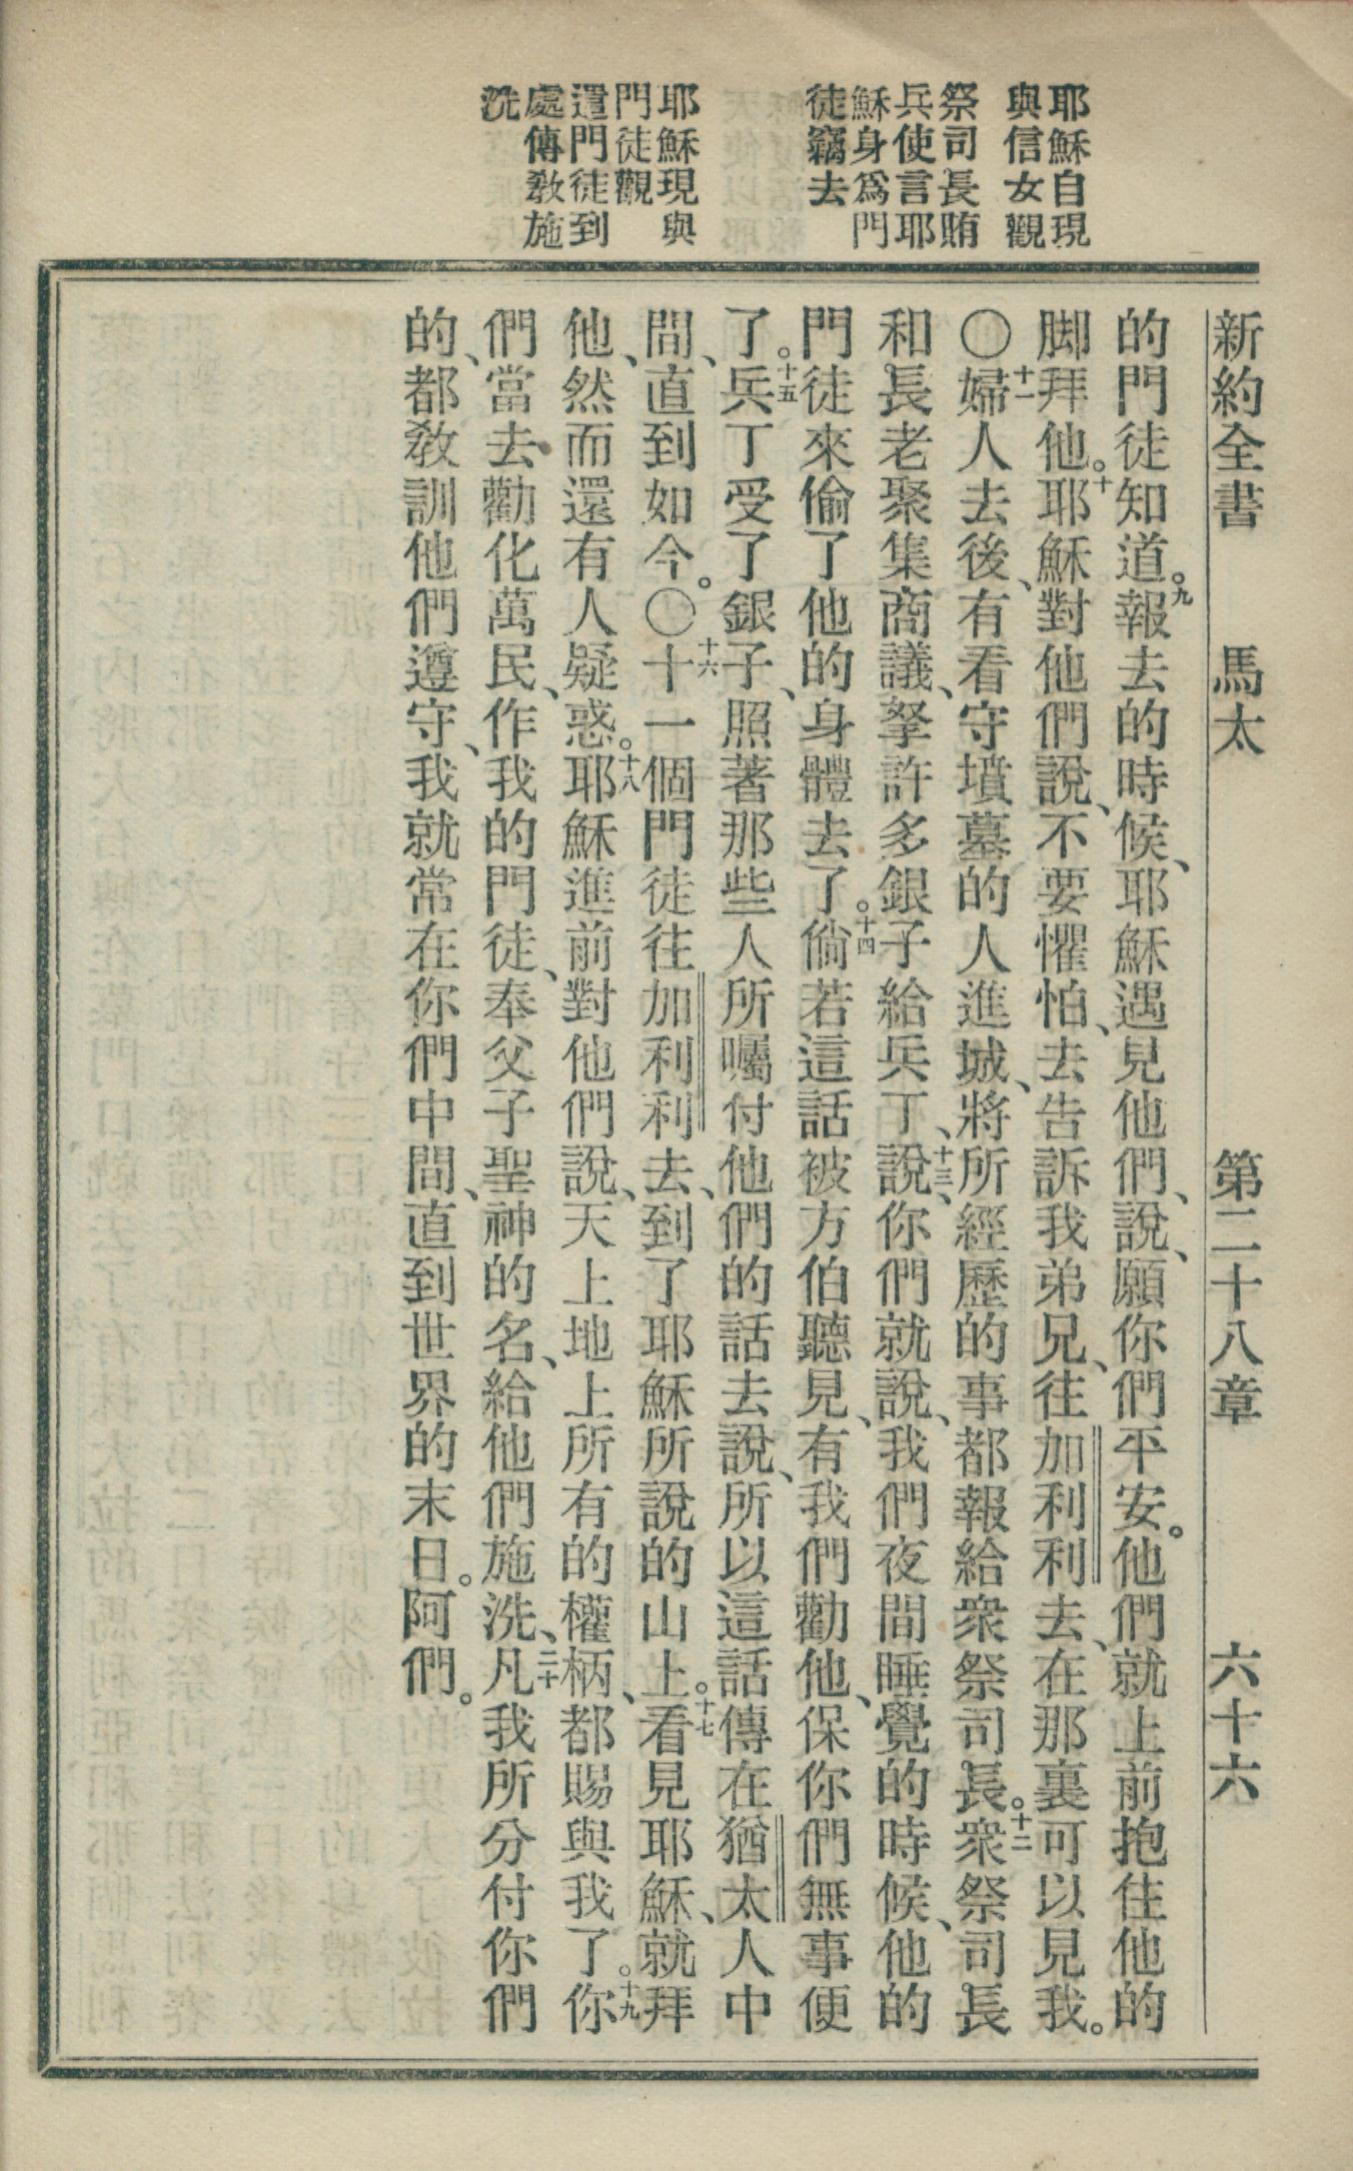 新約全書 馬太 第二十八章 六十六
耶穌自現
與信女觀
祭司長賄
兵使言耶
穌身爲門
徒竊去
耶穌現與
門徒觀
遣門徒到
處傳教施
洗
的門徒知道。九報去的時候、耶穌遇見他們、說、願你們平安。他們就上前抱住他的
脚拜他。十耶穌對他們說、不要懼怕、去告訴我弟兄、往加利利去、在那裏可以見我。
〇十一婦人去後、有看守墳墓的人進城、將所經歷的事都報給衆祭司長。十二衆祭司長
和長老聚集商議、拏許多銀子給兵丁、十三說、你們就說、我們夜間睡覺的時候、他的
門徒來偷了他的身體去了。十四倘若這話被方伯聽見、有我們勸他、保你們無事便
了。十五兵丁受了銀子、照著那些人所囑付他們的話去說、所以這話傳在猶太人中
間、直到如今。〇十六十一個門徒往加利利去、到了耶穌所說的山上。十七看見耶穌、就拜
他、然而還有人疑惑。十八耶穌進前對他們說、天上地上所有的權柄、都賜與我了。十九你
們當去勸化萬民、作我的門徒、奉父子聖神的名、給他們施洗、二十凡我所分付你們
的、都敎訓他們遵守、我就常在你們中間、直到世界的末日。阿們。